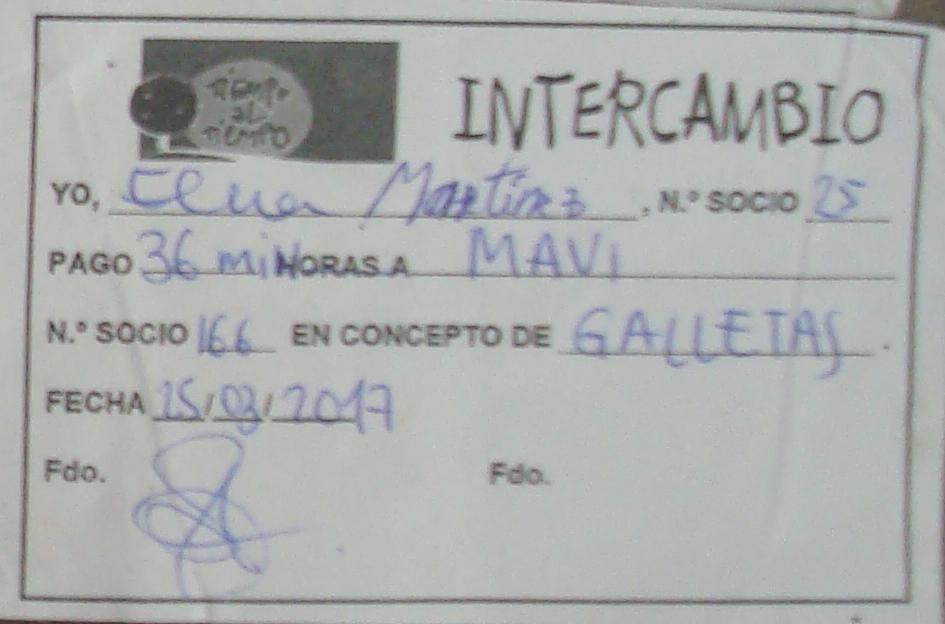 TIEMPO
AL
TIEMPO
INTERCAMBIO
YO, Elena Martínez, N.º SOCIO 25
PAGO 36 min HORAS A MAVI
N.º SOCIO 166 EN CONCEPTO DE GALLETAS.
FECHA 15/03/2017
Fdo. Fdo.